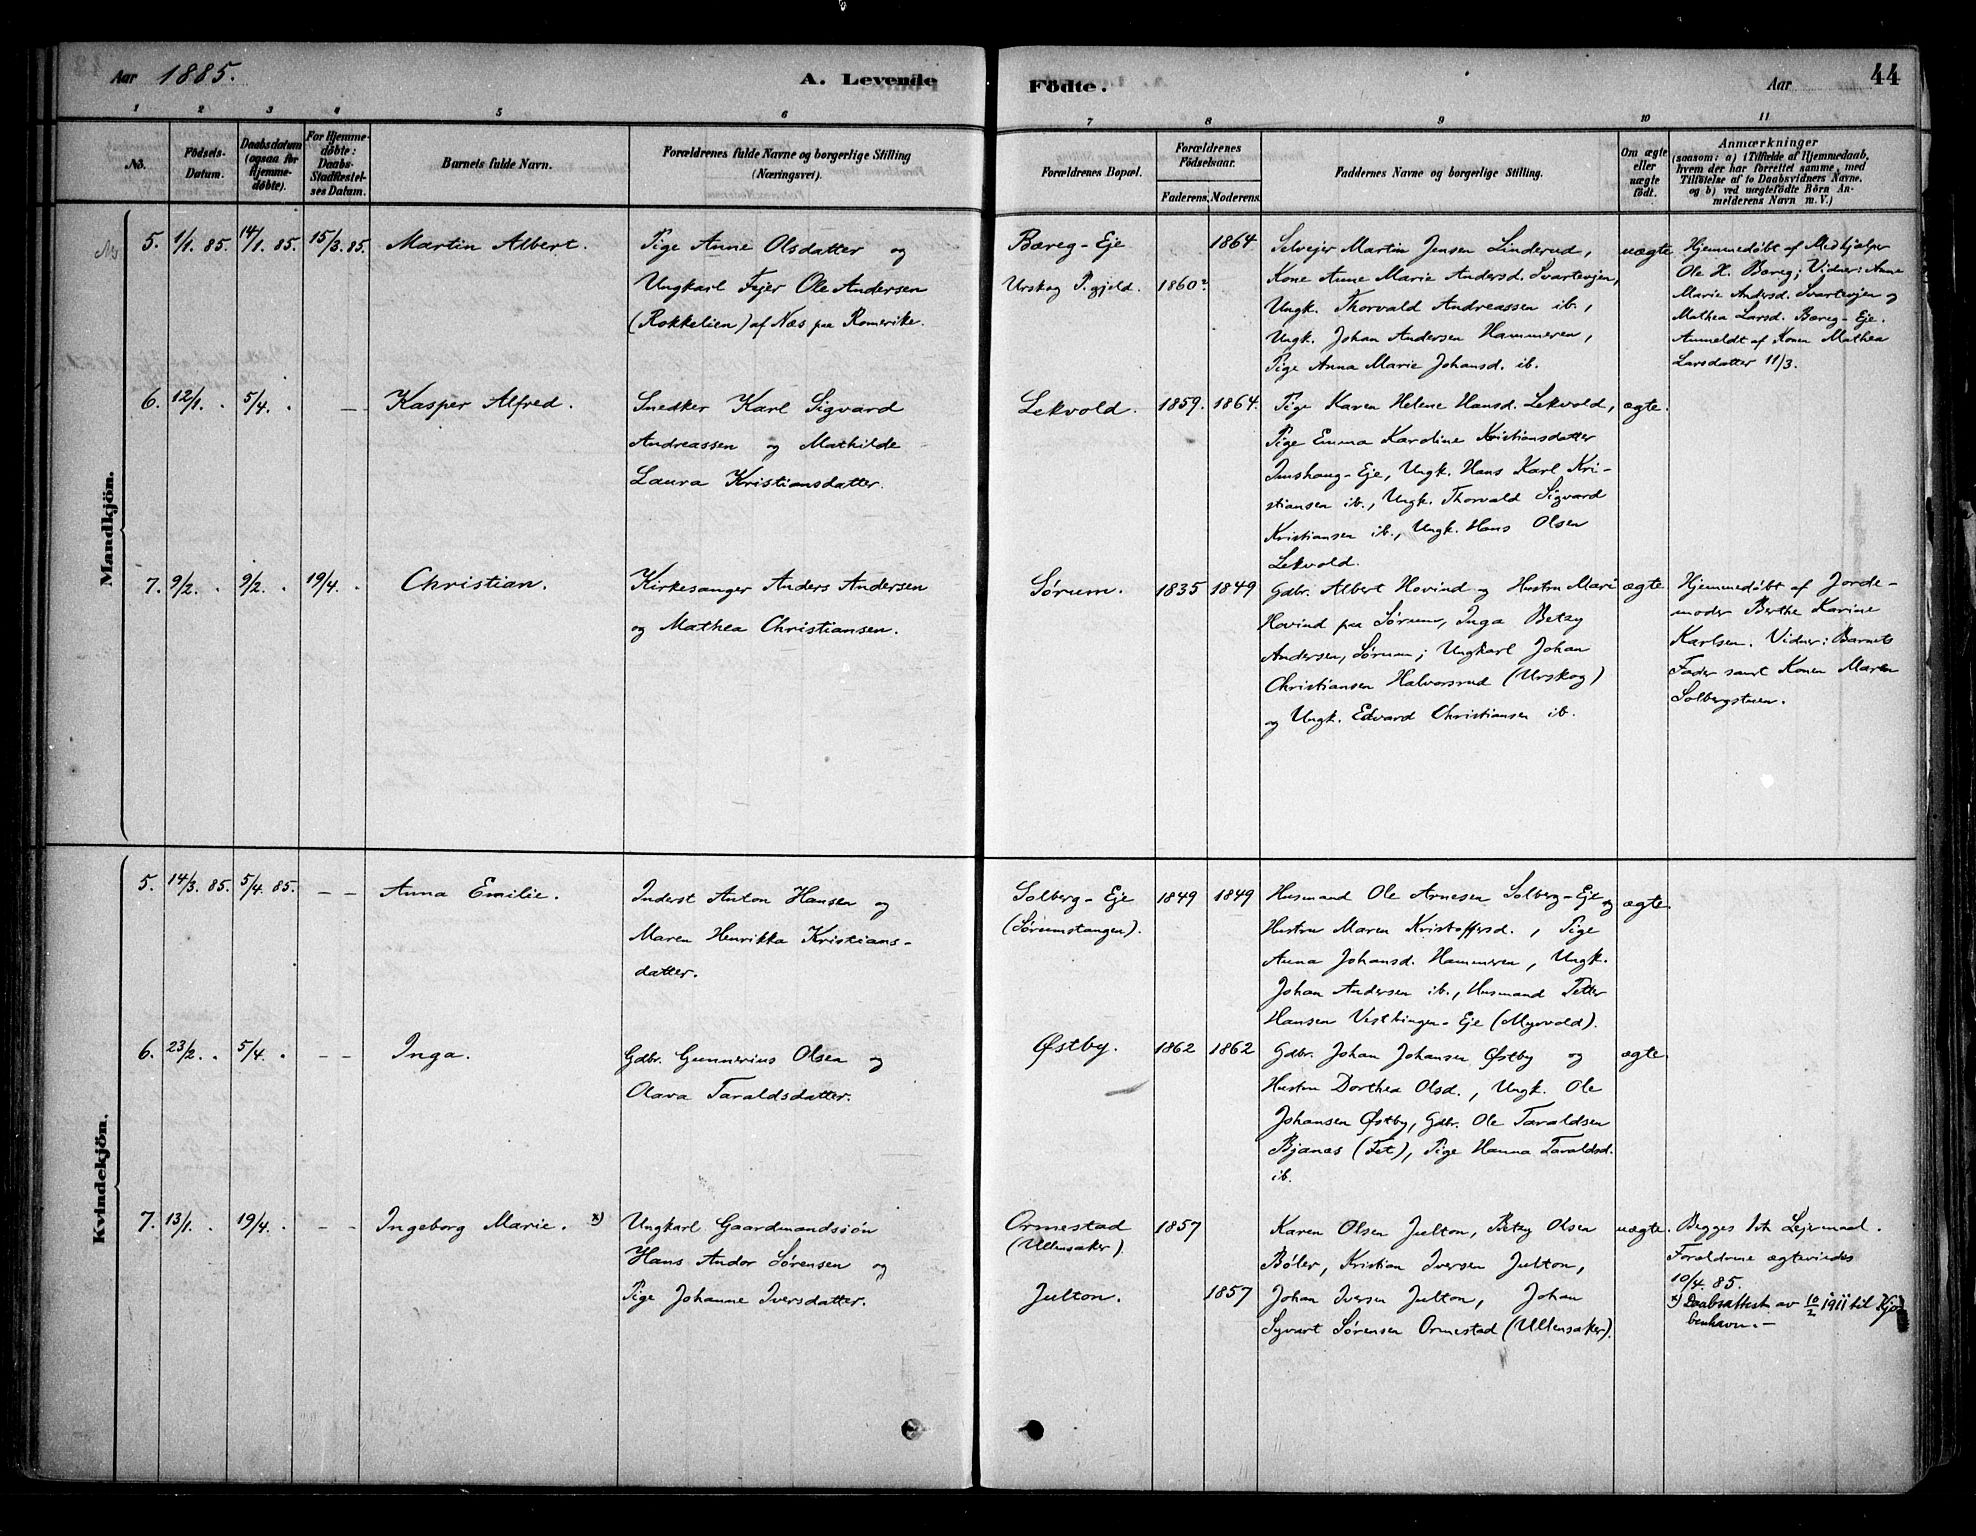 Aar 1885.
A. Levende
Födte.
Aar
44
1 2 3 4 5 6 7 8 9 10 11
No.
Födsels-
Datum.
Daabsdatum
(ogsaa for
Hjemme-
døbte).
For Hjemme-
døbte:
Daabs-
Stadfæstel-
ses Datum.
Barnets fulde Navn.
Forældrenes fulde Navne og borgerlige Stilling
(Næringsvei).
Forældrenes Bopæl.
Forældrenes
Födselsaar.
Faderens.
Moderens.
Faddernes Navne og borgerlige Stilling.
Om ægte
eller
uægte
født.
Anmærkninger
(saasom: a) i Tilfælde af Hjemmedaab,
hvem der har forrettet samme, med
Tilföielse af to Daabsvidners Navne,
og b) ved uægtefödte Börn An-
melderens Navn m. V.)
Mandkjön.
5. 1/1. 85. 14/1. 85. 15/3. 85. Martin Albert.
Pige Anne Olsdatter og
Ungkarl Fejer Ole Andersen
(Rokkelien) af Næs paa Romerike.
Bæreg-Eje
Urskog P.gjeld.
1860?
1864
Selvejer Martin Jensen Linderud,
Kone Anne Marie Andersd. Svartevjen,
Ungk. Thorvald Andreassen ib.,
Ungk. Johan Andersen Hammeren,
Pige Anna Marie Johansd. ib.
uægte
Hjemmedøbt af Medhjælper
Ole H. Bæreg; Vidner: Anne
Marie Andersd. Svartevjen og
Mathea Larsd. Bæreg-Eje.
Anmeldt af Konen Mathea
Larsdatter 11/3.
6. 12/1. " 5/4. " — Kasper Alfred.
Snedker Karl Sigvard
Andreassen og Mathilde
Laura Kristiansdatter.
Lekvold.
1859. 1864.
Pige Karen Helene Hansd. Lekvold,
Pige Emma Karoline Kristiansdatter
Imshaug-Eje, Ungk. Hans Karl Kri-
stiansen ib., Ungk. Thorvald Sigvard
Kristiansen ib., Ungk. Hans Olsen
Lekvold.
ægte.
7. 9/2. " 9/2. " 19/4. " Christian.
Kirkesanger Anders Andersen
og Mathea Christiansen.
Sørum.
1835 1849
Gdbr. Albert Hovind og Hustru Mari
Hovind paa Sørum, Inga Betzy
Andersen, Sørum; Ungkarl Johan
Christiansen Halvorsrud (Urskog)
og Ungk. Edvard Christiansen ib.
ægte
Hjemmedøbt af Jorde-
moder Berthe Karine
Karlsen. Vidner: Barnets
Fader samt Konen Maren
Solbergstuen.
Kvindekjön.
5. 14/3. 85. 5/4. 85. — — Anna Emilie.
Inderst Anton Hansen og
Maren Henrikka Kristians-
datter.
Solberg-Eje
(Sørumstangen).
1849 1849
Husmand Ole Arnesen Solberg-Eje og
Hustru Maren Kristoffersd., Pige
Anna Johansd. Hammeren, Ungk.
Johan Andersen ib., Husmand Petter
Hansen Vestbingen-Eje (Myrvold).
ægte.
6. 23/2. " 5/4. " — — Inga.
Gdbr. Gunnerius Olsen og
Olava Taraldsdatter.
Østby.
1862 1862
Gdbr. Johan Johansen Østby og
Hustru Dorthea Olsd., Ungk. Ole
Johansen Østby, Gdbr. Ole Taraldsen
Bjanæs (Fet), Pige Hanna Taraldsd.
ib.
ægte.
7. 13/1. " 19/4. " — — Ingeborg Marie. x)
Ungkarl Gaardmandssøn
Hans Andor Sørensen og
Pige Johanne Iversdatter.
Ormestad
(Ullensaker).
Julton.
1857
1857
Karen Olsen Julton, Betzy Olsen
Bøler, Kristian Iversen Julton,
Johan Iversen Julton, Johan
Syvart Sørensen Ormestad (Ullensaker).
uægte.
Begges 1ste Lejermaal.
Forældrene ægteviedes
10/4. 85.
x) Daabsattest av 10/2 1911 til Kjø-
benhavn.—